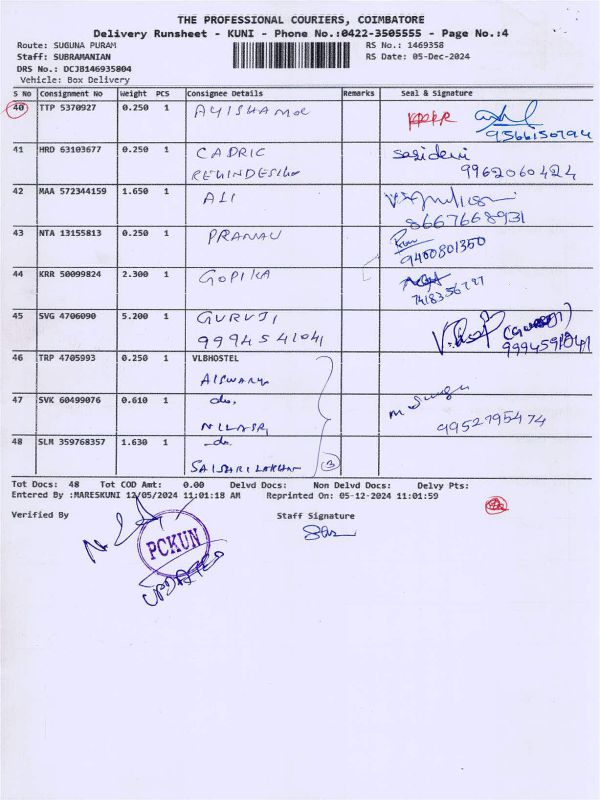 THE PROFESSIONAL COURIERS, COIMBATORE
Delivery Runsheet - KUNI - Phone No.:0422-3505555 - Page No.:4
Route: SUGUNA PURAM RS No.: 1469358
Staff: SUBRAMANIAN RS Date: 05-Dec-2024
DRS No.: DCJB146935804
Vehicle: Box Delivery
S No Consignment No Weight PCS Consignee Details Remarks Seal & Signature
40 TTP 5370927 0.250 1 AYISHAMOL
9566150794
41 HRD 63103677 0.250 1 CADRIC sasidevi
9962060424
42 MAA 572344159 1.650 1 ALI
8667668931
43 NTA 13155813 0.250 1 PRANAV
9400801350
44 KRR 50099824 2.300 1 GOPIKA
45 SVG 4706090 5.200 1 GURUJI
9994541041
46 TRP 4705993 0.250 1 VLBHOSTEL
AISWARYA
47 SVK 60499076 0.610 1 do.
NILASRI
9952795474
48 SLM 359768357 1.630 1 do.
3
Tot Docs: 48 Tot COD Amt: 0.00 Delvd Docs: Non Delvd Docs: Delvy Pts:
Entered By :MARESKUNI 12/05/2024 11:01:18 AM Reprinted On: 05-12-2024 11:01:59
Verified By Staff Signature
PCKUN
UPDATED